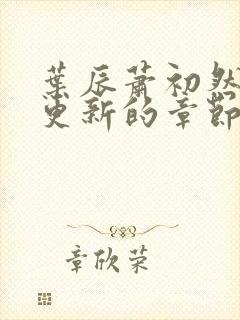 葉辰蕭初然
更新的章節
章欣荣